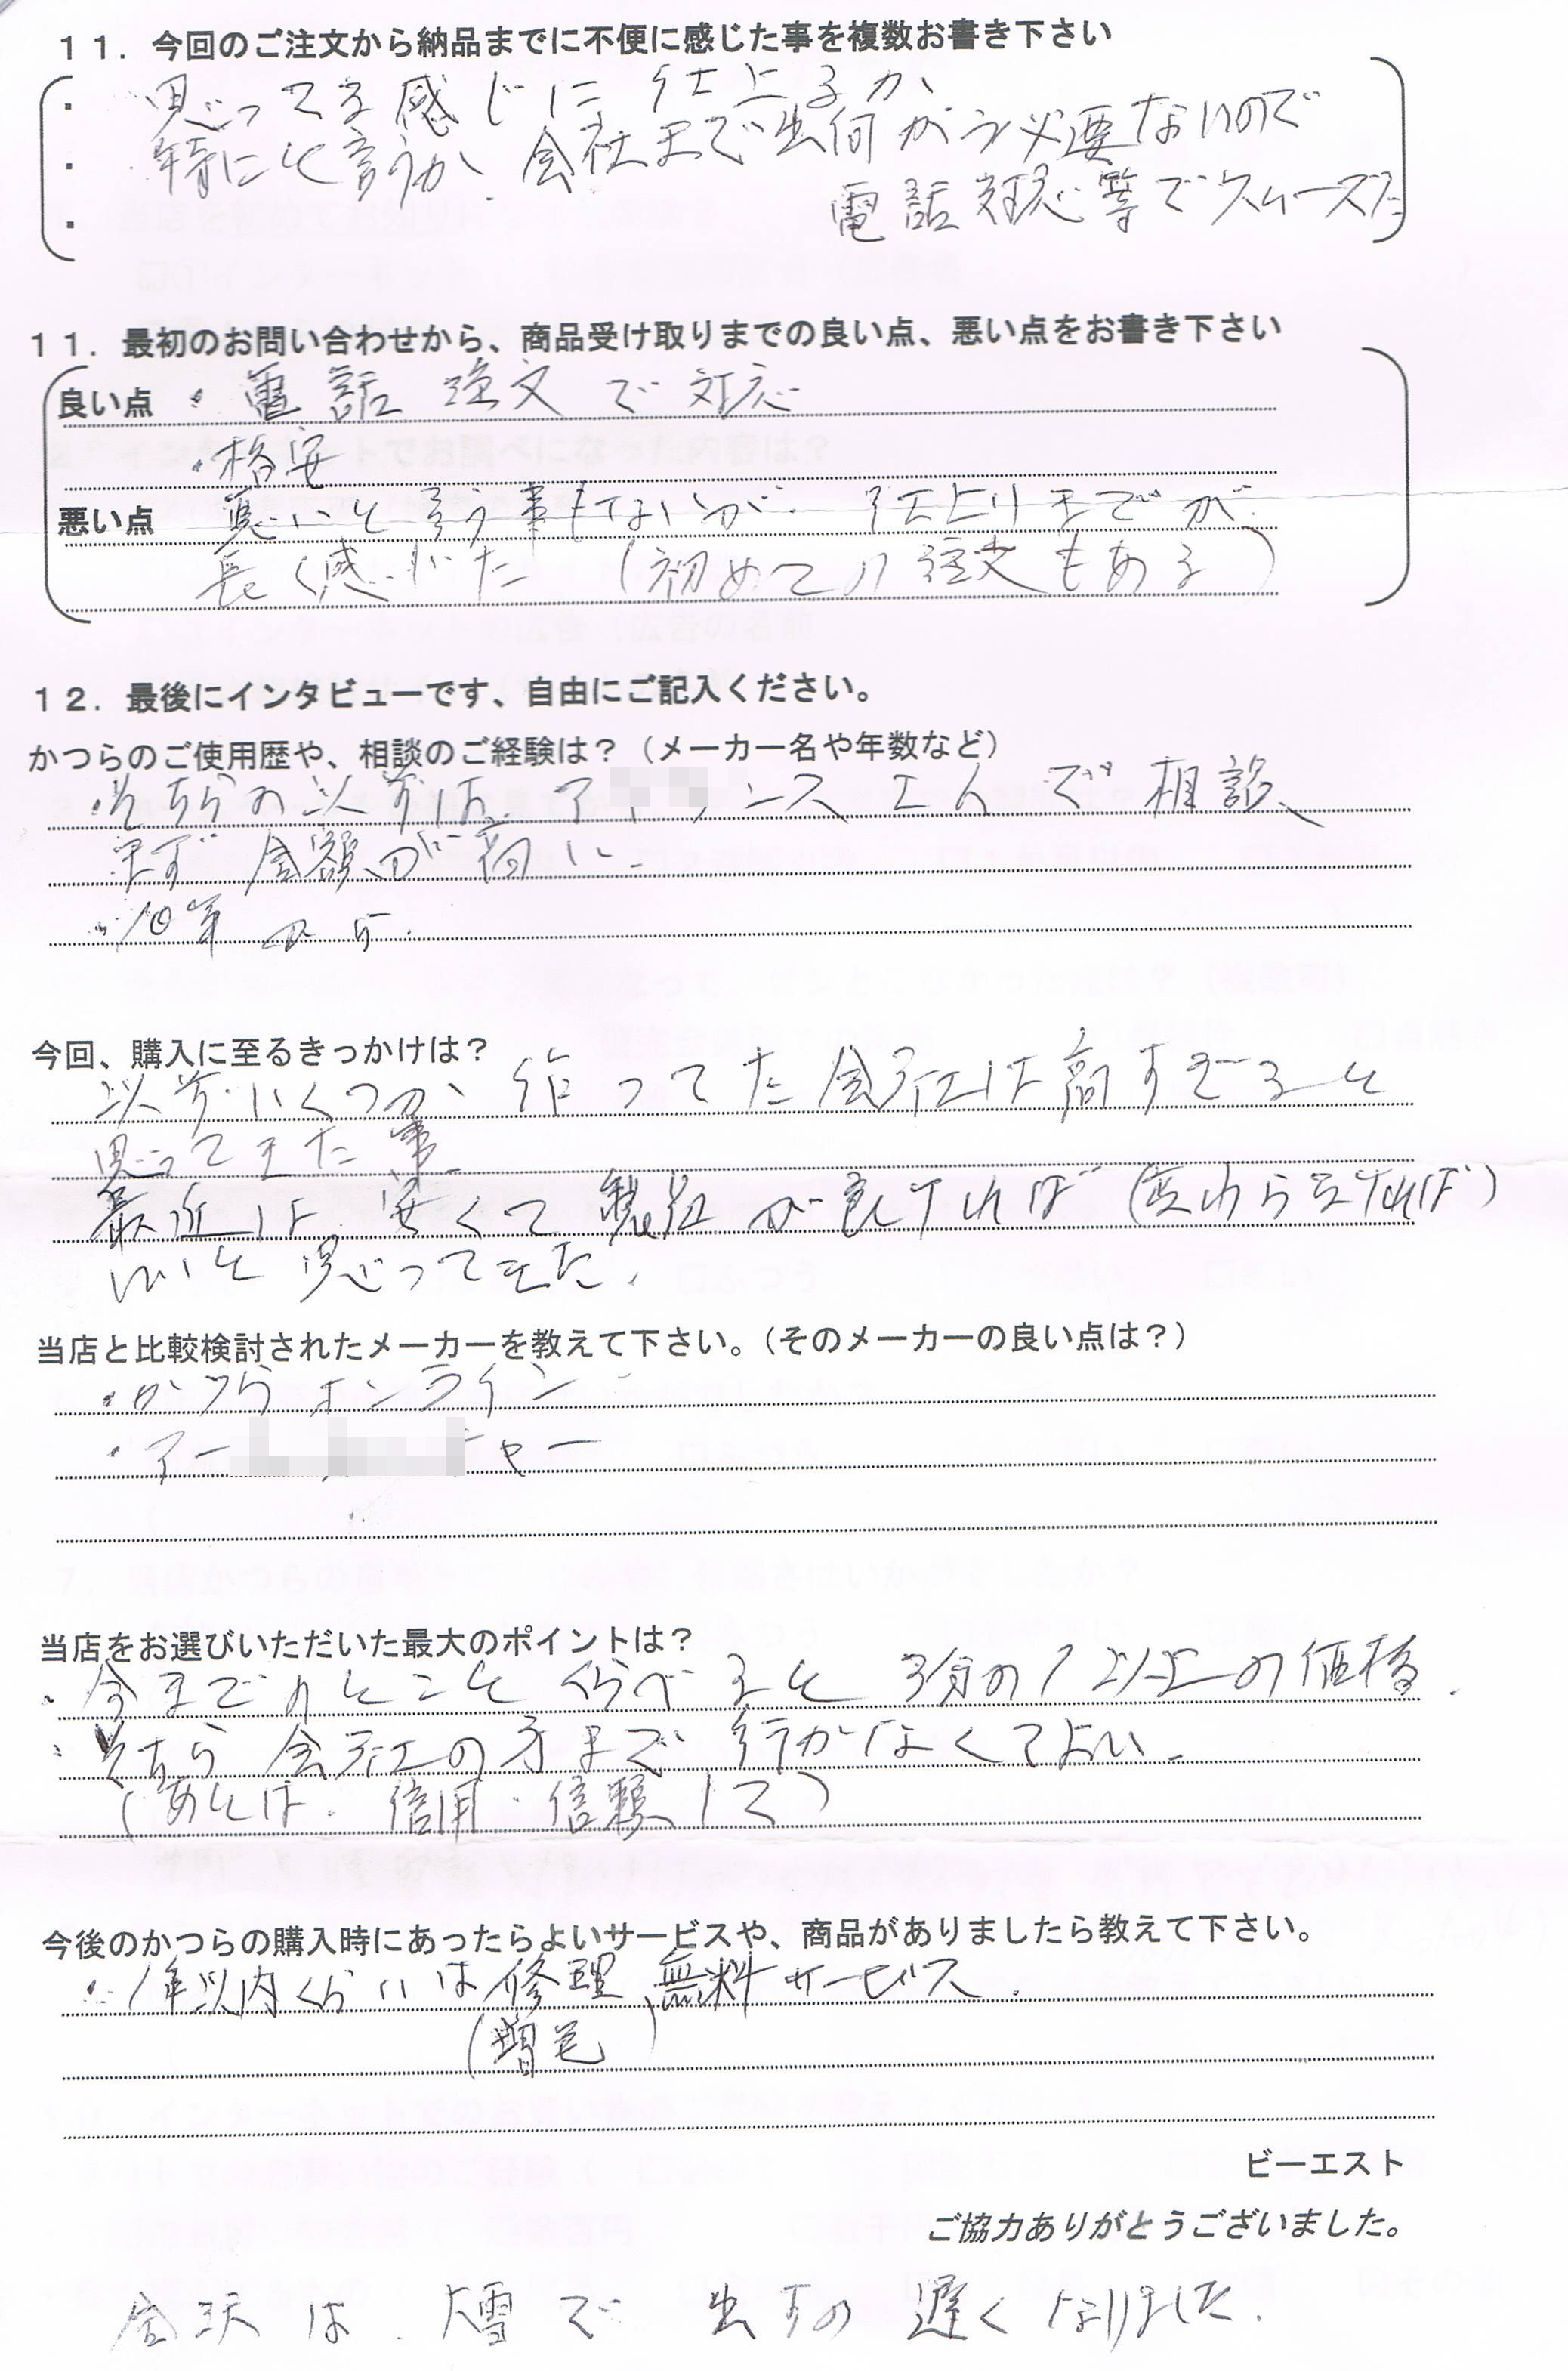 11．今回のご注文から納品までに不便に感じた事を複数お書き下さい
・思ってる感じに仕上るか、
・特にと言うか、会社まで出向がう必要ないので
・電話対応等でスムーズだ
11．最初のお問い合わせから、商品受け取りまでの良い点、悪い点をお書き下さい
良い点 ・電話注文で対応
・格安
悪い点 悪いと言う事もないが、仕上りまでが
長く感じた （初めての注文もある）
12．最後にインタビューです、自由にご記入ください。
かつらのご使用歴や、相談のご経験は？（メーカー名や年数など）
・そちらの以前は、ア ンスさんで相談、
まず金額が高い。
・10年から.
今回、購入に至るきっかけは？
以前いくつか作ってた会社は高すぎると
思ってきた事、
最近は安くて製品が良ければ（変わらなければ）
いいと思ってきた。
当店と比較検討されたメーカーを教えて下さい。（そのメーカーの良い点は？）
・かつらオンライン
・アー チャー
当店をお選びいただいた最大のポイントは？
・今までのとこと くらべると 3分の1以上の価格.
・そちら会社の方まで行かなくてよい。
（あとは、信用・信頼して）
今後のかつらの購入時にあったらよいサービスや、商品がありましたら教えて下さい。
・1年以内くらいは修理 無料サービス.
（増毛）
ビーエスト
ご協力ありがとうございました。
金沢は、大雪で 出すの 遅くなりました.